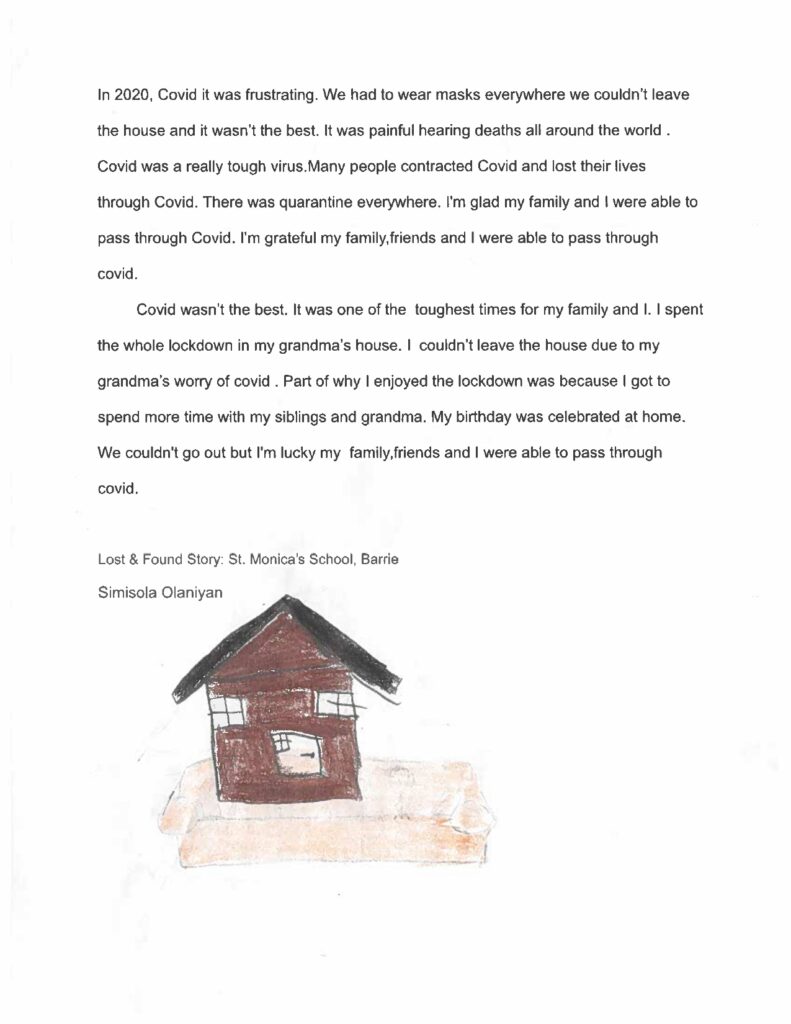 In 2020, Covid it was frustrating. We had to wear masks everywhere we couldn't leave
the house and it wasn't the best. It was painful hearing deaths all around the world .
Covid was a really tough virus.Many people contracted Covid and lost their lives
through Covid. There was quarantine everywhere. I'm glad my family and I were able to
pass through Covid. I'm grateful my family,friends and I were able to pass through
covid.
Covid wasn't the best. It was one of the  toughest times for my family and I. I spent
the whole lockdown in my grandma's house. I  couldn't leave the house due to my
grandma's worry of covid . Part of why I enjoyed the lockdown was because I got to
spend more time with my siblings and grandma. My birthday was celebrated at home.
We couldn't go out but I'm lucky my  family,friends and I were able to pass through
covid.
Lost & Found Story: St. Monica's School, Barrie
Simisola Olaniyan